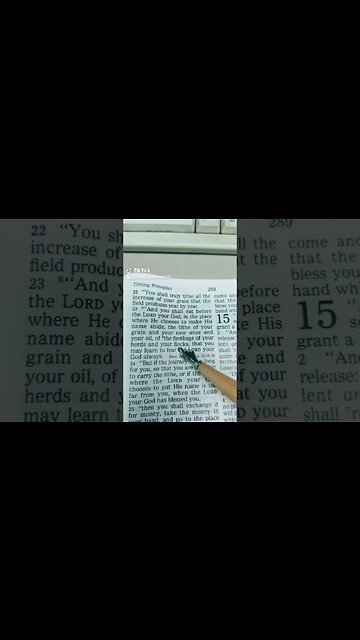 TikTok
Tithing Principles
289
22 "You shall truly tithe all the
increase of your grain that the
field produces year by year.
23 "And you shall eat before
the LORD your God, in the place
where He chooses to make His
name abide, the tithe of your
grain and your new wine and
your oil, of the firstlings of your
herds and your flocks, that you
may learn to fear the LORD your
God always.
24 "But if the journey is too long
for you, so that you are
to carry the tithe, or if the
where the LORD your
chooses to put His name is too
far from you, when the LORD
your God has blessed you,
25 "then you shall exchange it
for money, take the money in
your hand, and go to the place
come and
that the
bless you
hand wh
15
grant a
2 "And
release:
lent
shall
22 "You sha
increase of
field produc
23 R"And y
the LORD yo
where He c
name abide
grain and
your oil, of
herds and y
may learn t
289
ll the
t the
efore
place
e His
your
and
your
you
your
come and
that the
bless you
hand wh
15
grant a
2 "And
release:
lent ar
shall